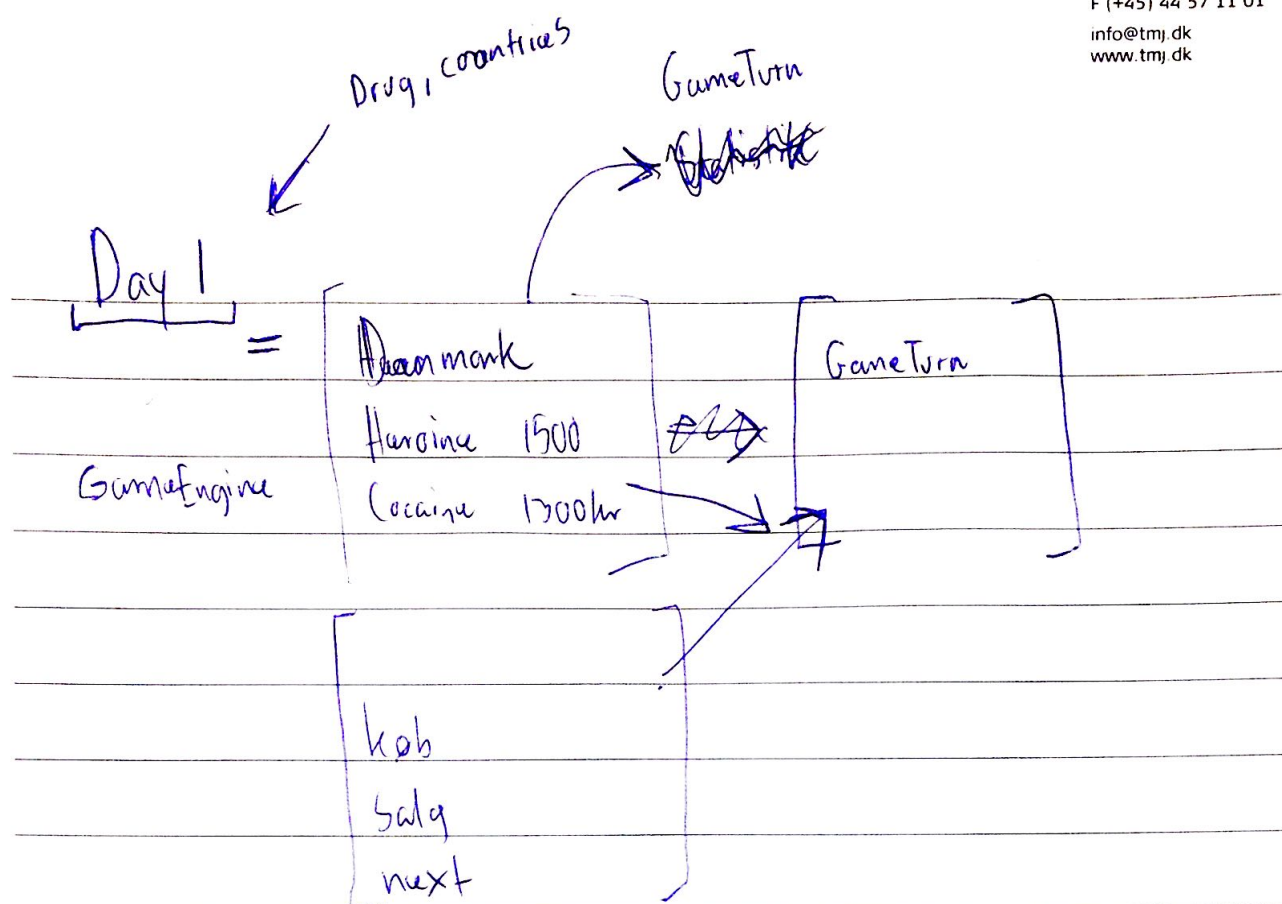 F (+45) 44 57 11 01
info@tmj.dk
www.tmj.dk
Drug, countries
GameTurn
Day 1
=
Danmark
Heroine 1500
Cocaine 1300kr
GameTurn
GameEngine
køb
salg
next